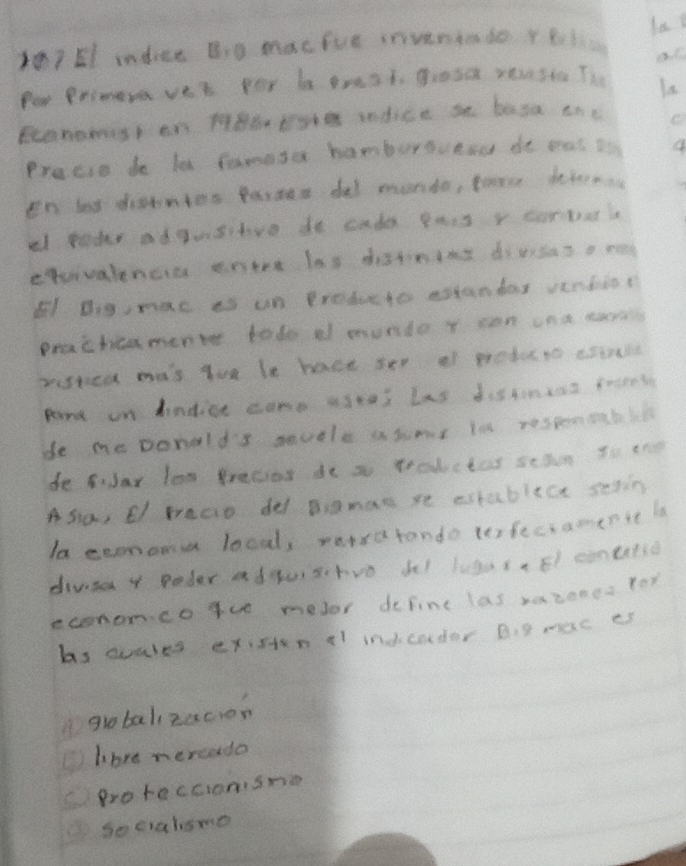 107 El indice Big mac fue inventado y
Por Primera vez por la prest. giosa revista The
Economist en 1986. Este indice se basa en e
Precio de la famosa hamburguesa de
En los distintos Paises del mundo, para
el poder adquisitivo de cada Pais y
equivalencia entre las distintas divisas o
El Big, mac es un Producto estandar
practicamente todo el mundo y con una
ristica mas que le hace ser el producto
Para un indice como este: Las distintas
de mc Donald's asumir la
de fijar los Precios de productos segun su
Asia, El Precio del Bigmac se establece segun
la economia local, retratando perfectamente la
divisa y Poder adquisitivo del lugar. El concepto
economico que mejor define las razones Por
las cuales existen el indicador Big mac es
A globalización
B libre mercado
C Proteccionismo
D socialismo
la
la